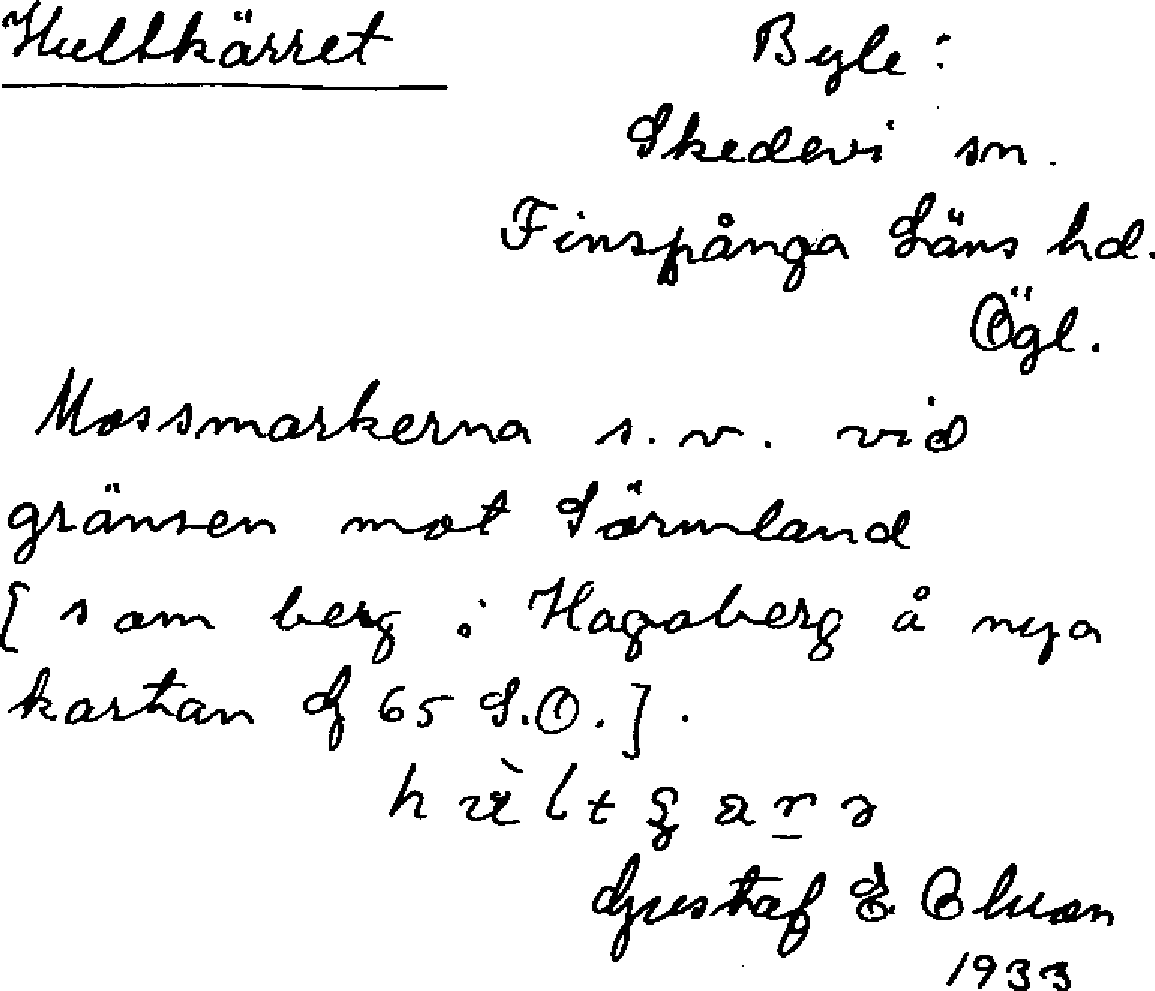 Hultkärret Byle:
Skedevi sn.
Finspånga Läns hd.
Ögl.
Mossmarkerna s.v. vid
gränsen mot Sörmland
[som berg i Hagaberg å nya
kartan Gf 65 S.O.].
Gustaf E
1933